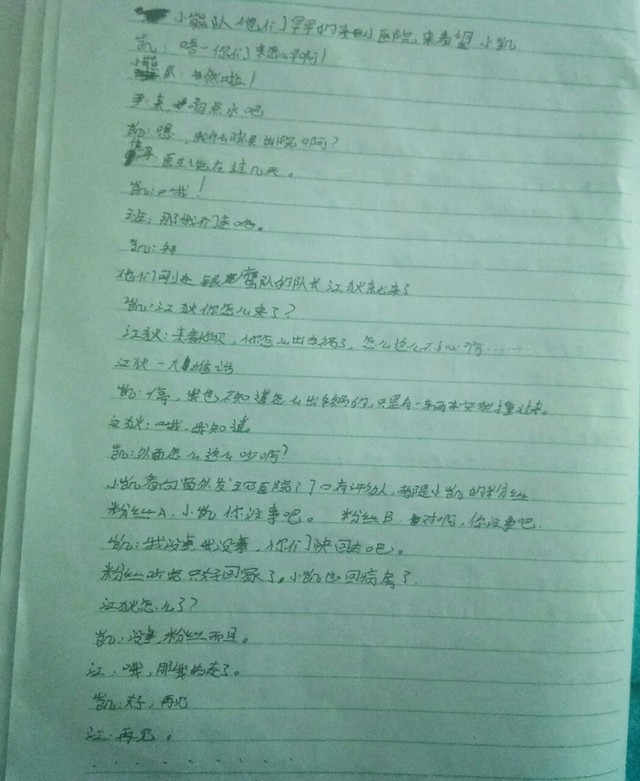 小熊队他们早早的来到医院来看望小凯
凯：唔－你们来怎么早啊！
小熊队：当然啦！
喝点水吧
凯：嗯，我什么时候出院啊？
医生说在过几天。
凯：哦！
班：那我们走咯。
凯：好
他们刚走银鹰队的队长江狄就来了
凯：江狄你怎么来了？
江狄：来看你呗，你怎么出车祸了，怎么这么不小心啊……
江狄一大堆话
凯：停，我也不知道怎么出车祸的，只是有一车向我突然撞过来。
江狄：哦，我知道。
凯：外面怎么这么吵啊？
小凯看向窗外发现医院门口有许多人，都是小凯的粉丝
粉丝A：小凯你没事吧。 粉丝B：对啊，你没事吧
凯：我没事我没事，你们快回去吧。
粉丝听完只好回家了。小凯也回病房了
江狄怎么了？
凯：没事，粉丝而且。
江：哦，那我的走了。
凯：好，再见
江：再见。